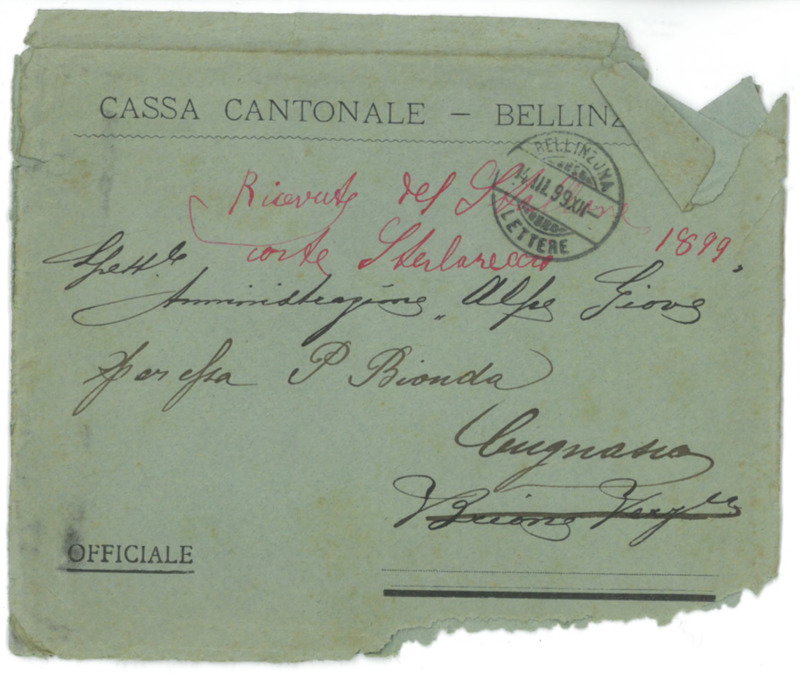 CASSA CANTONALE – BELLINZ
BELLINZONA
14 III. 99. XII–
LETTERE
Ricevute del
corte Sterlareccio 1899
Spett.le
Amministrazione „Alpe Giove”
per essa P Bionda
Cugnasco
Brione Verz
OFFICIALE